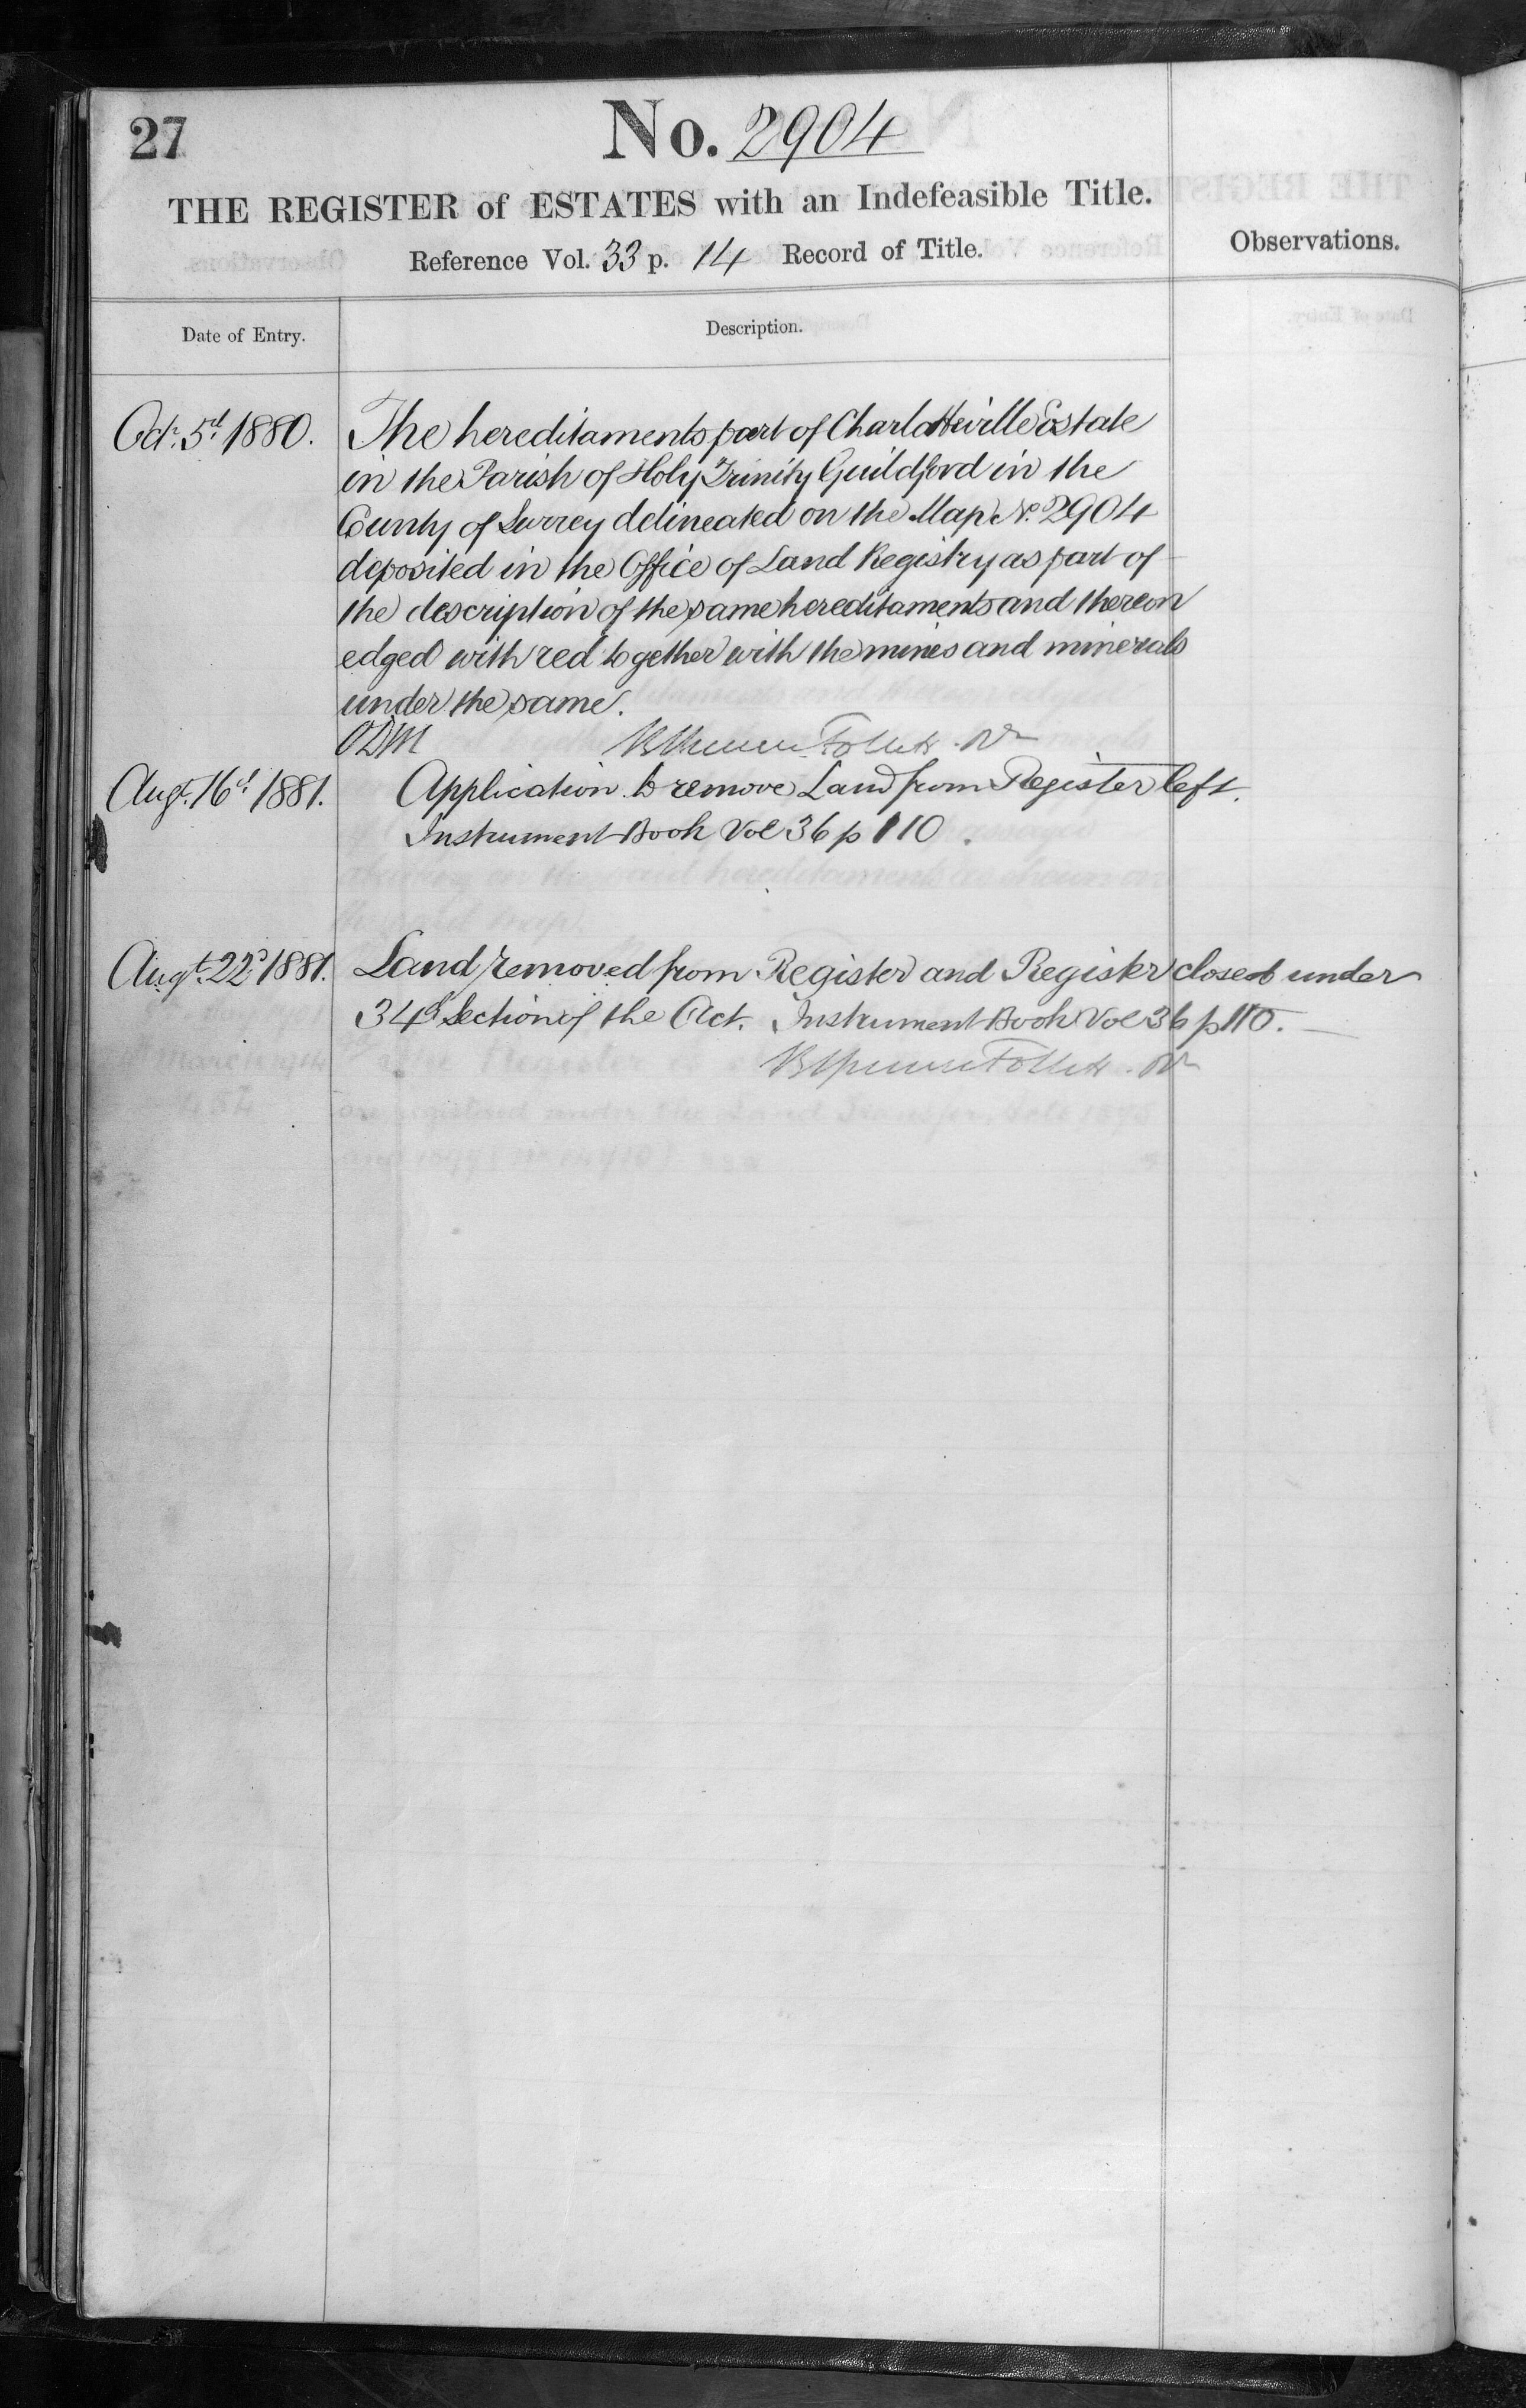 27
No. 2904
THE REGISTER of ESTATES with an Indefeasible Title.
Reference Vol. 33 p. 14 Record of Title.
Observations.
Date of Entry.
Description.
Oct. 5th 1880.
The hereditaments part of Charlotteville Estate
in the Parish of Holy Trinity Guildford in the
County of Surrey delineated on the Map No. 2904
deposited in the Office of Land Registry as part of
the description of the same hereditaments and thereon
edged with red together with the mines and minerals
under the same.
Follett
Augt. 16th 1881.
Application to remove Land from Register left.
Instrument Book Vol 36 p 110
Augt. 22d 1881.
Land removed from Register and Register closed under
34th Section of the Act. Instrument Book Vol 36 p 110.
Follett